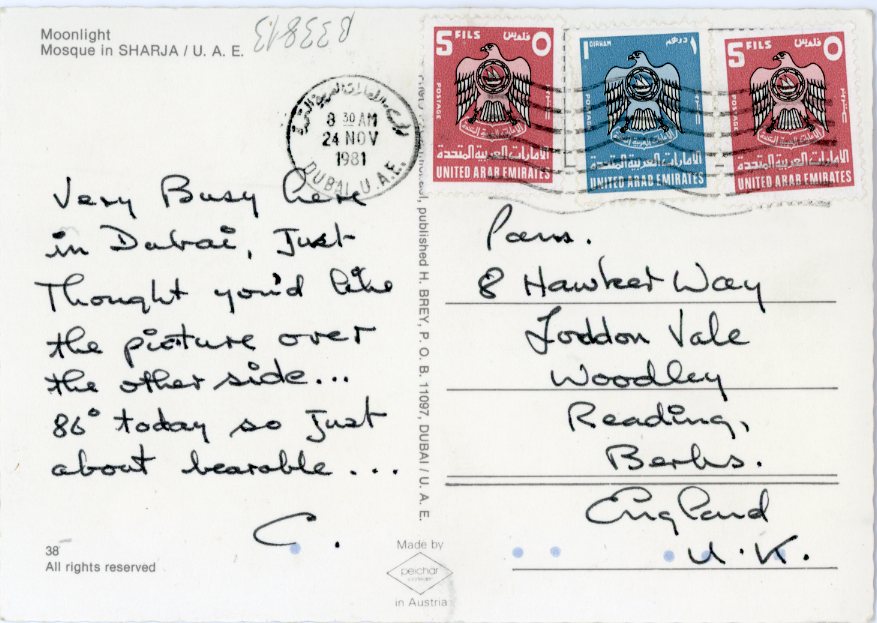 Moonlight
Mosque in SHARJA / U. A. E.
B33813
8 30 AM
24 NOV
1981
DUBAI, U.A.E.
5 FILS فلوس ٥
POSTAGE بريد
الإمارات العربية المتحدة
UNITED ARAB EMIRATES
1 DIRHAM درهم ١
POSTAGE بريد
الإمارات العربية المتحدة
UNITED ARAB EMIRATES
5 FILS فلوس ٥
POSTAGE بريد
الإمارات العربية المتحدة
UNITED ARAB EMIRATES
Very Busy here
in Dubai, Just
Thought you'd like
the picture over
the other side...
86° today so Just
about bearable...
C.
published H. BREY, P. O. B. 11097, DUBAI / U. A. E.
Pam.
8 Hawker Way
Loddon Vale
Woodley
Reading,
Berks.
England
U.K.
38
All rights reserved
Made by
peichär
in Austria